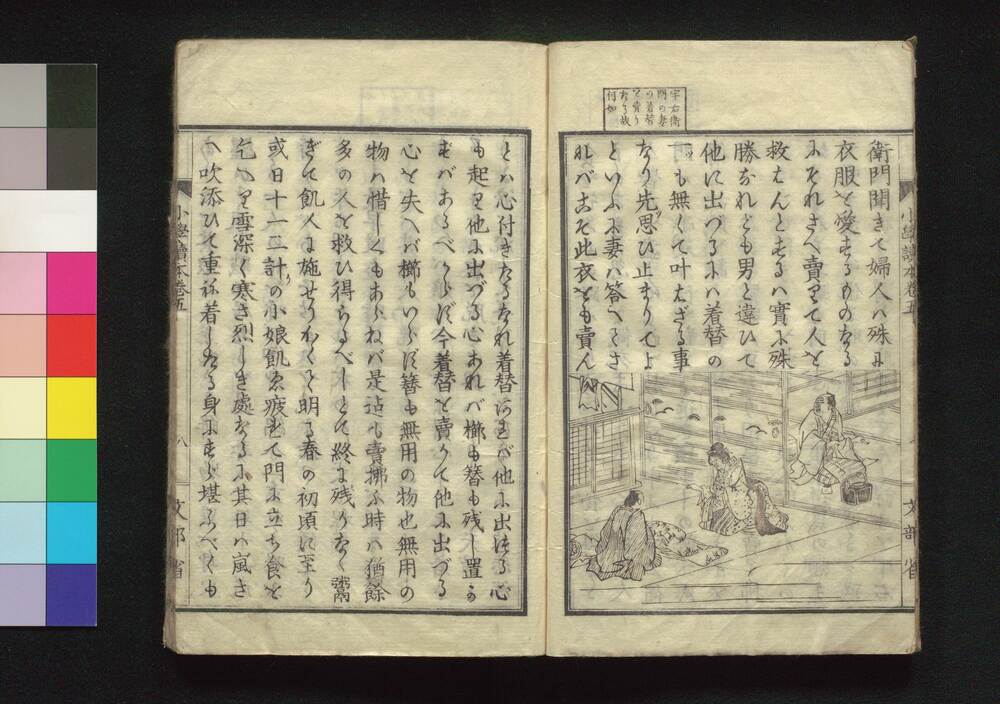 宇右衛
門の妻
の着替
を賣り
たる故
何如
衛門聞きて婦人ハ殊に
衣服を愛するものなる
にそれさへ賣りて人を
救はんとするハ實に殊
勝なれども男と違ひて
他に出づるにハ着替の
一つも無くて叶はざる事
なり先思ひ止まりてよ
といふに妻ハ答へてさ
れバこそ此衣をも賣ん
小學讀本巻五
文部省
とハ心付きたるなれ着替あれバ他に出はる心
も起り他に出づる心あれバ櫛も簪も残し置か
ずバあるべからず今着替を賣りて他に出づる
心を失へバ櫛もいらず簪も無用の物也無用の
物ハ惜しくもあらねバ是迠も賣拂ふ時ハ猶餘
多の人を救ひ得らるべしとて終に残りなく鬻
ぎて飢人に施せりかくて明る春の初頃に至り
或日十一二計りの小娘飢ゑ疲れて門に立ち食を
乞へり雪深く寒さ烈しき處なるに其日ハ嵐さ
へ吹添ひて重ね着したる身にすら堪ふべくも
小學讀本巻五
八
文部省